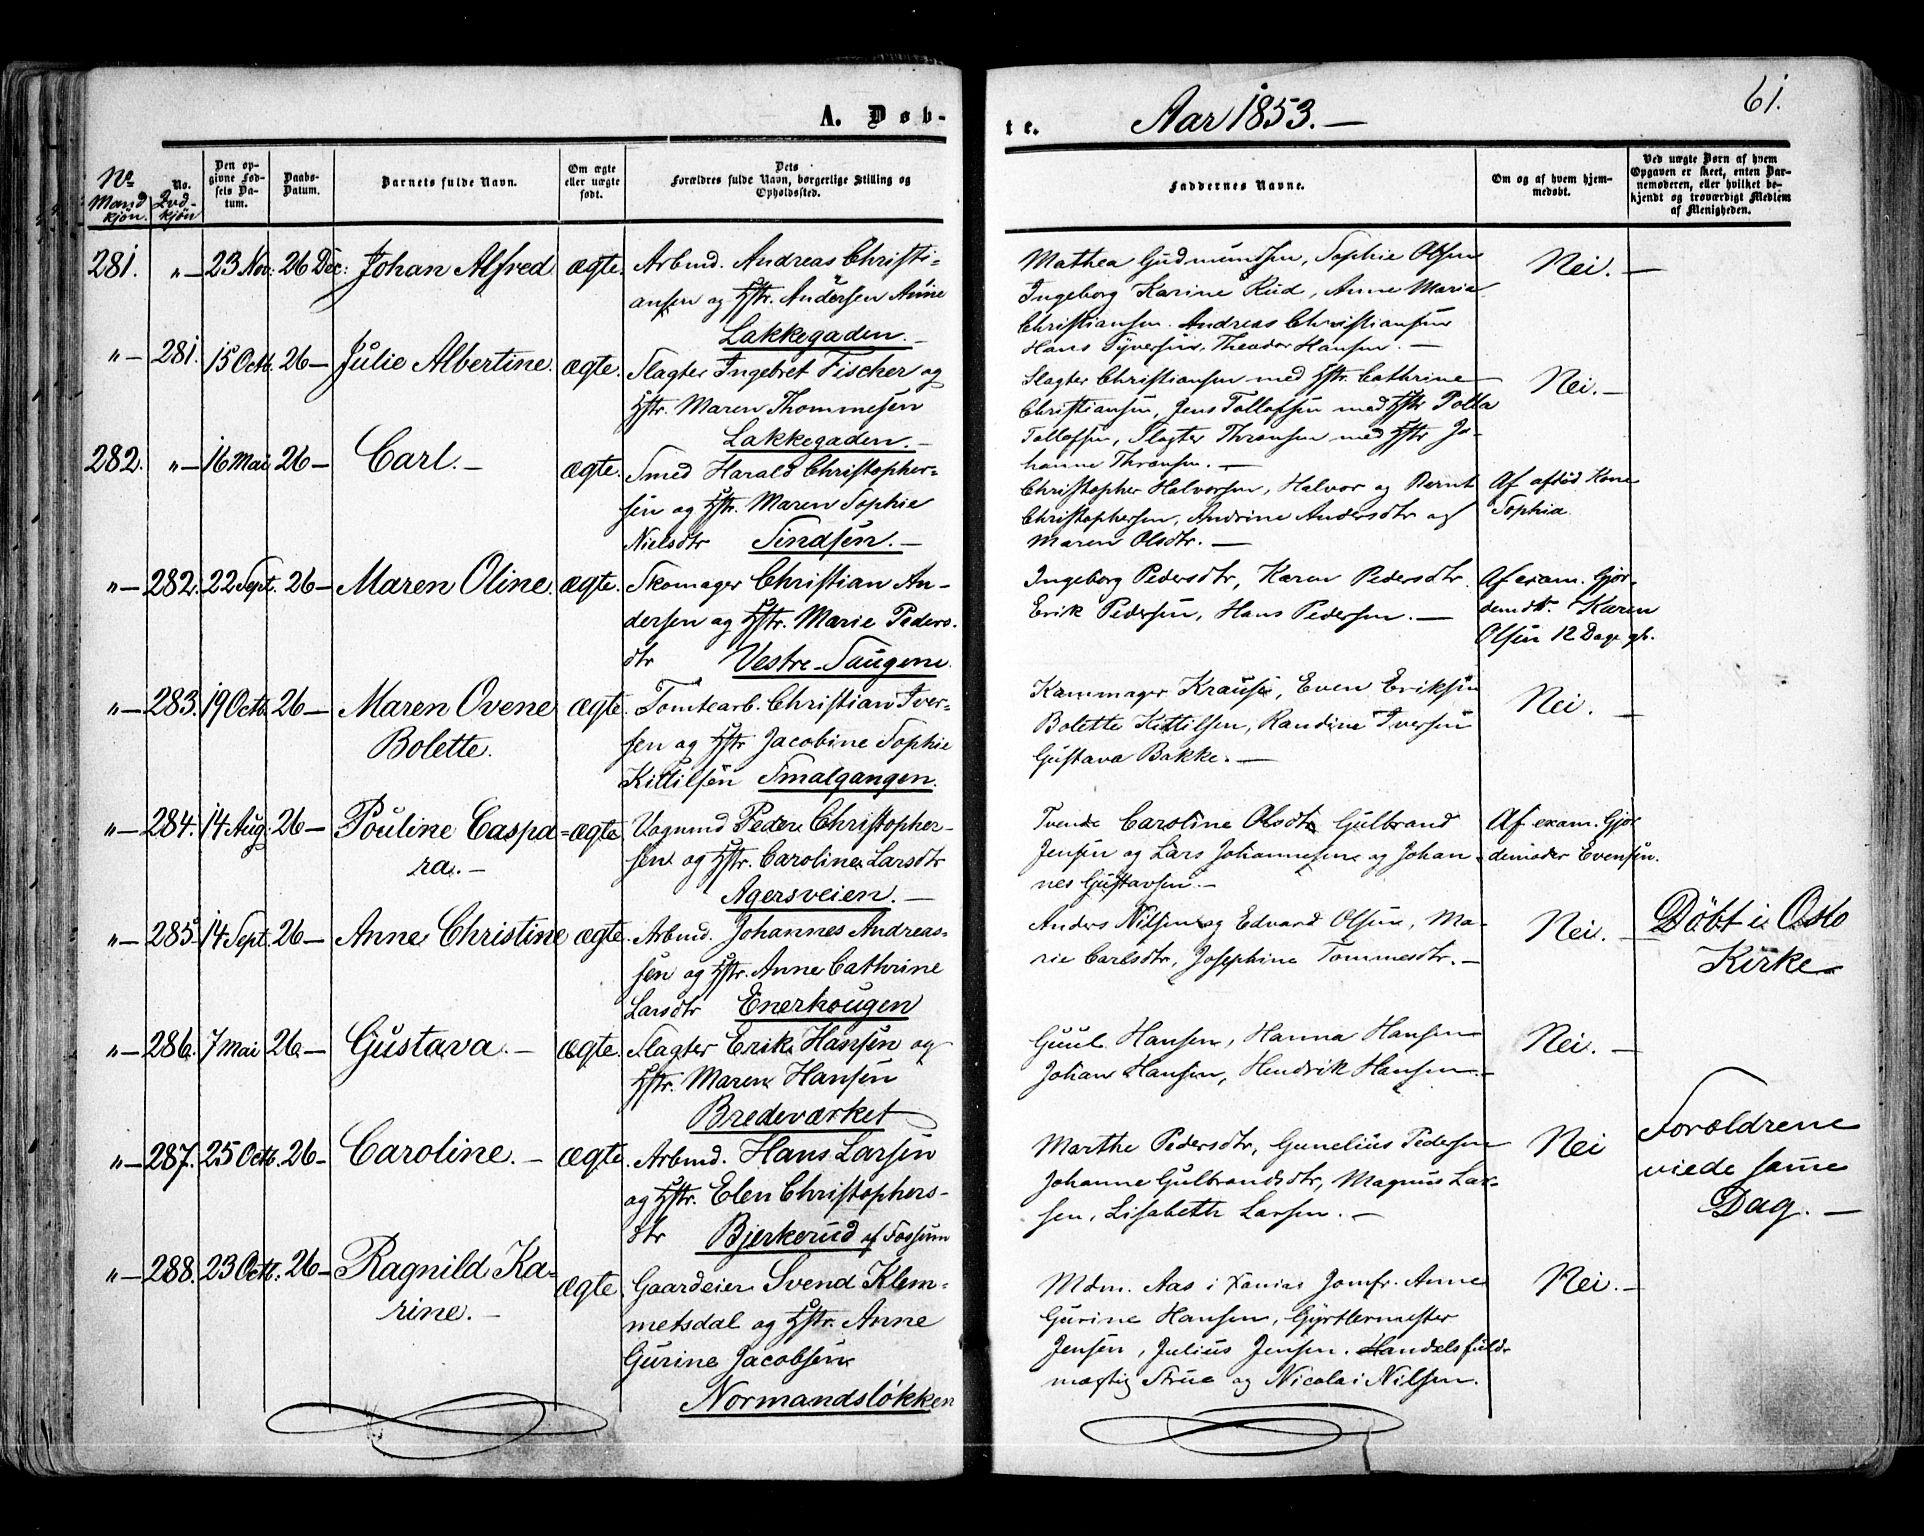 A. Døb-
te. Aar 1853. — 61.
No Mandkjøn.
No. Qvdkjøn
Den opgivne Fødsels Datum.
Daabs-Datum.
Barnets fulde Navn.
Om ægte eller uægte født.
Dets Forældres fulde Navn, borgerlige Stilling og Opholdssted.
Faddernes Navne.
Om og af hvem hjemmedøbt.
Ved uægte Børn af hvem Opgaven er skeet, enten Barnemoderen, eller hvilket bekjendt og troværdigt Medlem af Menigheden.
281. "— 23 Nov: 26 Dec: Johan Alfred ægte. Arbmd. Andreas Christi-
ansen og Hstr. Andersen Anne
Lakkegaden. —
Mathea Gudmundsen, Sophie Olsen
Ingeborg Karine Rud, Anne Maria
Christiansen. Andreas Christiansen
Hans Syversen, Theodor Hansen. —
Nei. —
"— 281. 15 Octb. 26 — Julie Albertine. ægte. Slagter Ingebret Fischer og
Hstr. Maren Thommesen
Lakkegaden. —
Slagter Christiansen med Hstr. Cathrine
Christiansen, Jens Tollofsen med Hstr Polla
Tollofsen, Slagter Thransen med Hstr Jo-
hanne Thransen. —
Nei. —
282. "— 16 Mai 26 — Carl. — ægte. Smed Harald Christopher-
sen og Hstr. Maren Sophie
Nielsdtr Tindsen. —
Christopher Halvorsen, Halvor og Bernt
Christophersen, Andrine Andersdtr og
Maren Olsdtr. —
Af afsid. Kone
Sophia.
"— 282. 22 Sept. 26 — Maren Oline. ægte. Skomager Christian An-
dersen og Hstr. Marie Peders-
dtr Vestre-Saugene.
Ingeborg Pedersdtr, Karen Pedersdtr.
Erik Pedersen, Hans Pedersen. —
Af exam. Gjor-
demdr. Karen
Olsen 12 Dage gl.
"— 283. 19 Octb. 26 — Maren Ovene
Bolette.
ægte. Tomtearb. Christian Iver-
sen og Hstr Jacobine Sophie
Kittilsen Smalgangen.
Kammager Krause, Even Eriksen
Bolette Kittilsen, Randine Iversen
Gustava Bakke. —
Nei. —
"— 284. 14 Aug. 26 — Pouline Caspa-
ra. —
ægte. Vognmd Peder Christopher-
sen og Hstr. Caroline Larsdtr
Agersveien. —
Tvende Caroline Olsdtr Gulbrand
Jensen og Lars Johannesen og Johan-
nes Gustavsen. —
Af exam. Gjor-
demoder Evensen.
"— 285. 14 Sept. 26 — Anne Christine ægte. Arbmd. Johannes Andreas-
sen og Hstr. Anne Cathrine
Larsdtr Enerhougen
Anders Nilsen og Edvard Olsen, Ma-
rie Carlsdtr, Josephine Tommesdtr. —
Nei. —
Döbt i Oslo
Kirke —
"— 286. 7 Mai 26 — Gustava. — ægte. Slagter Erik Hansen og
Hstr. Maren Hansen
Bredeværket
Guul Hansen, Hanna Hansen
Johan Hansen, Hendrik Hansen. —
Nei. —
"— 287. 25 Octb. 26 — Caroline. — ægte. Arbmd. Hans Larsen
og Hstr. Elen Christophers-
dtr Bjerkerud af Fossum
Marthe Pedersdtr, Gunelius Pedersen
Johanne Gulbrandsdtr, Magnus Lar-
sen, Lisabeth Larsen. —
Nei
Forældrene
viede samme
Dag. —
"— 288. 23 Octb. 26 — Ragnild Ka-
rine. —
ægte. Gaardeier Svend Klem-
metsdal og Hstr. Anne
Gurine Jacobsen
Normandsløkken
Mdm. Aas i Jomfr. Anne
Gurine Hansen, Gjørtlermester
Jensen, Julius Jensen. Handelsfuld-
mægtig Strue og Nicolai Nilsen.
Nei. —